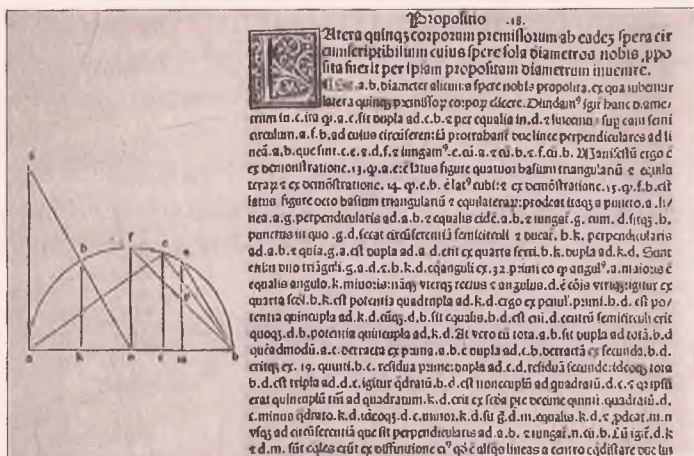 Propositio .18.
Latera quinqȝ corporum premissorum ab eadeȝ spera cir
cunscriptibilium cuius spere sola diametros nobis ,ppo
sita fuerit per ipsam propositam diametrum inuenire.
.a.b. diameter alicuius spere nobis proposita. ex qua iubemur
latera quinqȝ premissoȝ corpoȝ elicere. Diuidamꝰ igiť hanc diame,
trum in .c. ita ꝙ .a.c. sit dupla ad .c.b. ⁊ per equalia in .d. ⁊ sup eam semi
circulum .a.f.b. ad cuius circūferentiā protrahant due linee perpendiculares ad li
neā .a.b. que sint .c.e. ⁊ .d.f. ⁊ iungamꝰ .e. cū .a. ⁊ cū .b. ⁊ .f. cū .b. ergo ē
ex demonstratione .13. ꝙ .a.e. ē latus figure quatuor basium triangulariū ⁊ equila
teraȝ ⁊ ex demōstratione .14. ꝙ .e.b. ē latꝰ cubi: ⁊ ex demōstratione .15. ꝙ .f.b. est
latus figure octo basium triangulariū ⁊ equilateraȝ: prodeat itaqȝ a puncto .a. li/
nea .a.g. perpendicularis ad .a.b. ⁊ equalis eidē .a.b. ⁊ iungať .g. cum .d. sitqȝ .h.
punctus in quo .g.d. secat circūferentiā semicirculi ⁊ ducať .h.k. perpendicularis
ad .a.b. ⁊ quia .g.a. est dupla ad .a.d. erit ex quarta sexti .h.k. dupla ad .k.d. Sunt
enim duo triāguli .g.a.d. ⁊ .h.k.d. eq̄anguli ex .32. primi eo ꝙ angulꝰ .a. maioris ē
equalis angulo .k. minoris: nāqȝ vterqȝ rectus ⁊ angulus .d. ē cōis vtriqȝ: igitur ex
quarta .h.k. est potentia quadrupla ad .k.d. ergo ex penul. primi .h.d. est po/
tentia quincupla ad .k.d. cūqȝ .d.b. sit equalis .h.d. est eni .d. centrū semicirculi erit
quoqȝ .d.b. potentia quincupla ad .k.d. At vero cū tota .a.b. sit dupla ad totā .b.d
quēadmodū .a.c. detracta ex prima .a.b. ē dupla ad .c.b. detractā ex secunda .b.d.
eritqȝ ex .19. quinti .b.c. residua prime: dupla ad .c.d. residuā secunde: ideoqȝ tota
b.d. est tripla ad .d.c. igitur q̄dratū .b.d. est noncuplū ad quadratū .d.c. ⁊ ipsū
erat quincuplū tm̄ ad quadratum .k.d. erit ex scd̄a pte decime quinti quadratū .d.
c. minus q̄drato .k.d. ideoqȝ .d.c. minor .k.d. sit .d.m. equalis .k.d. ⁊ ,pdeat .m.n
vsqȝ ad circūferentiā que sit perpendicularis ad .a.b. ⁊ iungať .n. cū .b. Cū igiť .d.k
⁊ .d.m. sūt eq̄les erūt ex diffinitione a centro eq̄distare due lin
g
h
f
e
n
a
k
d
c
m
b